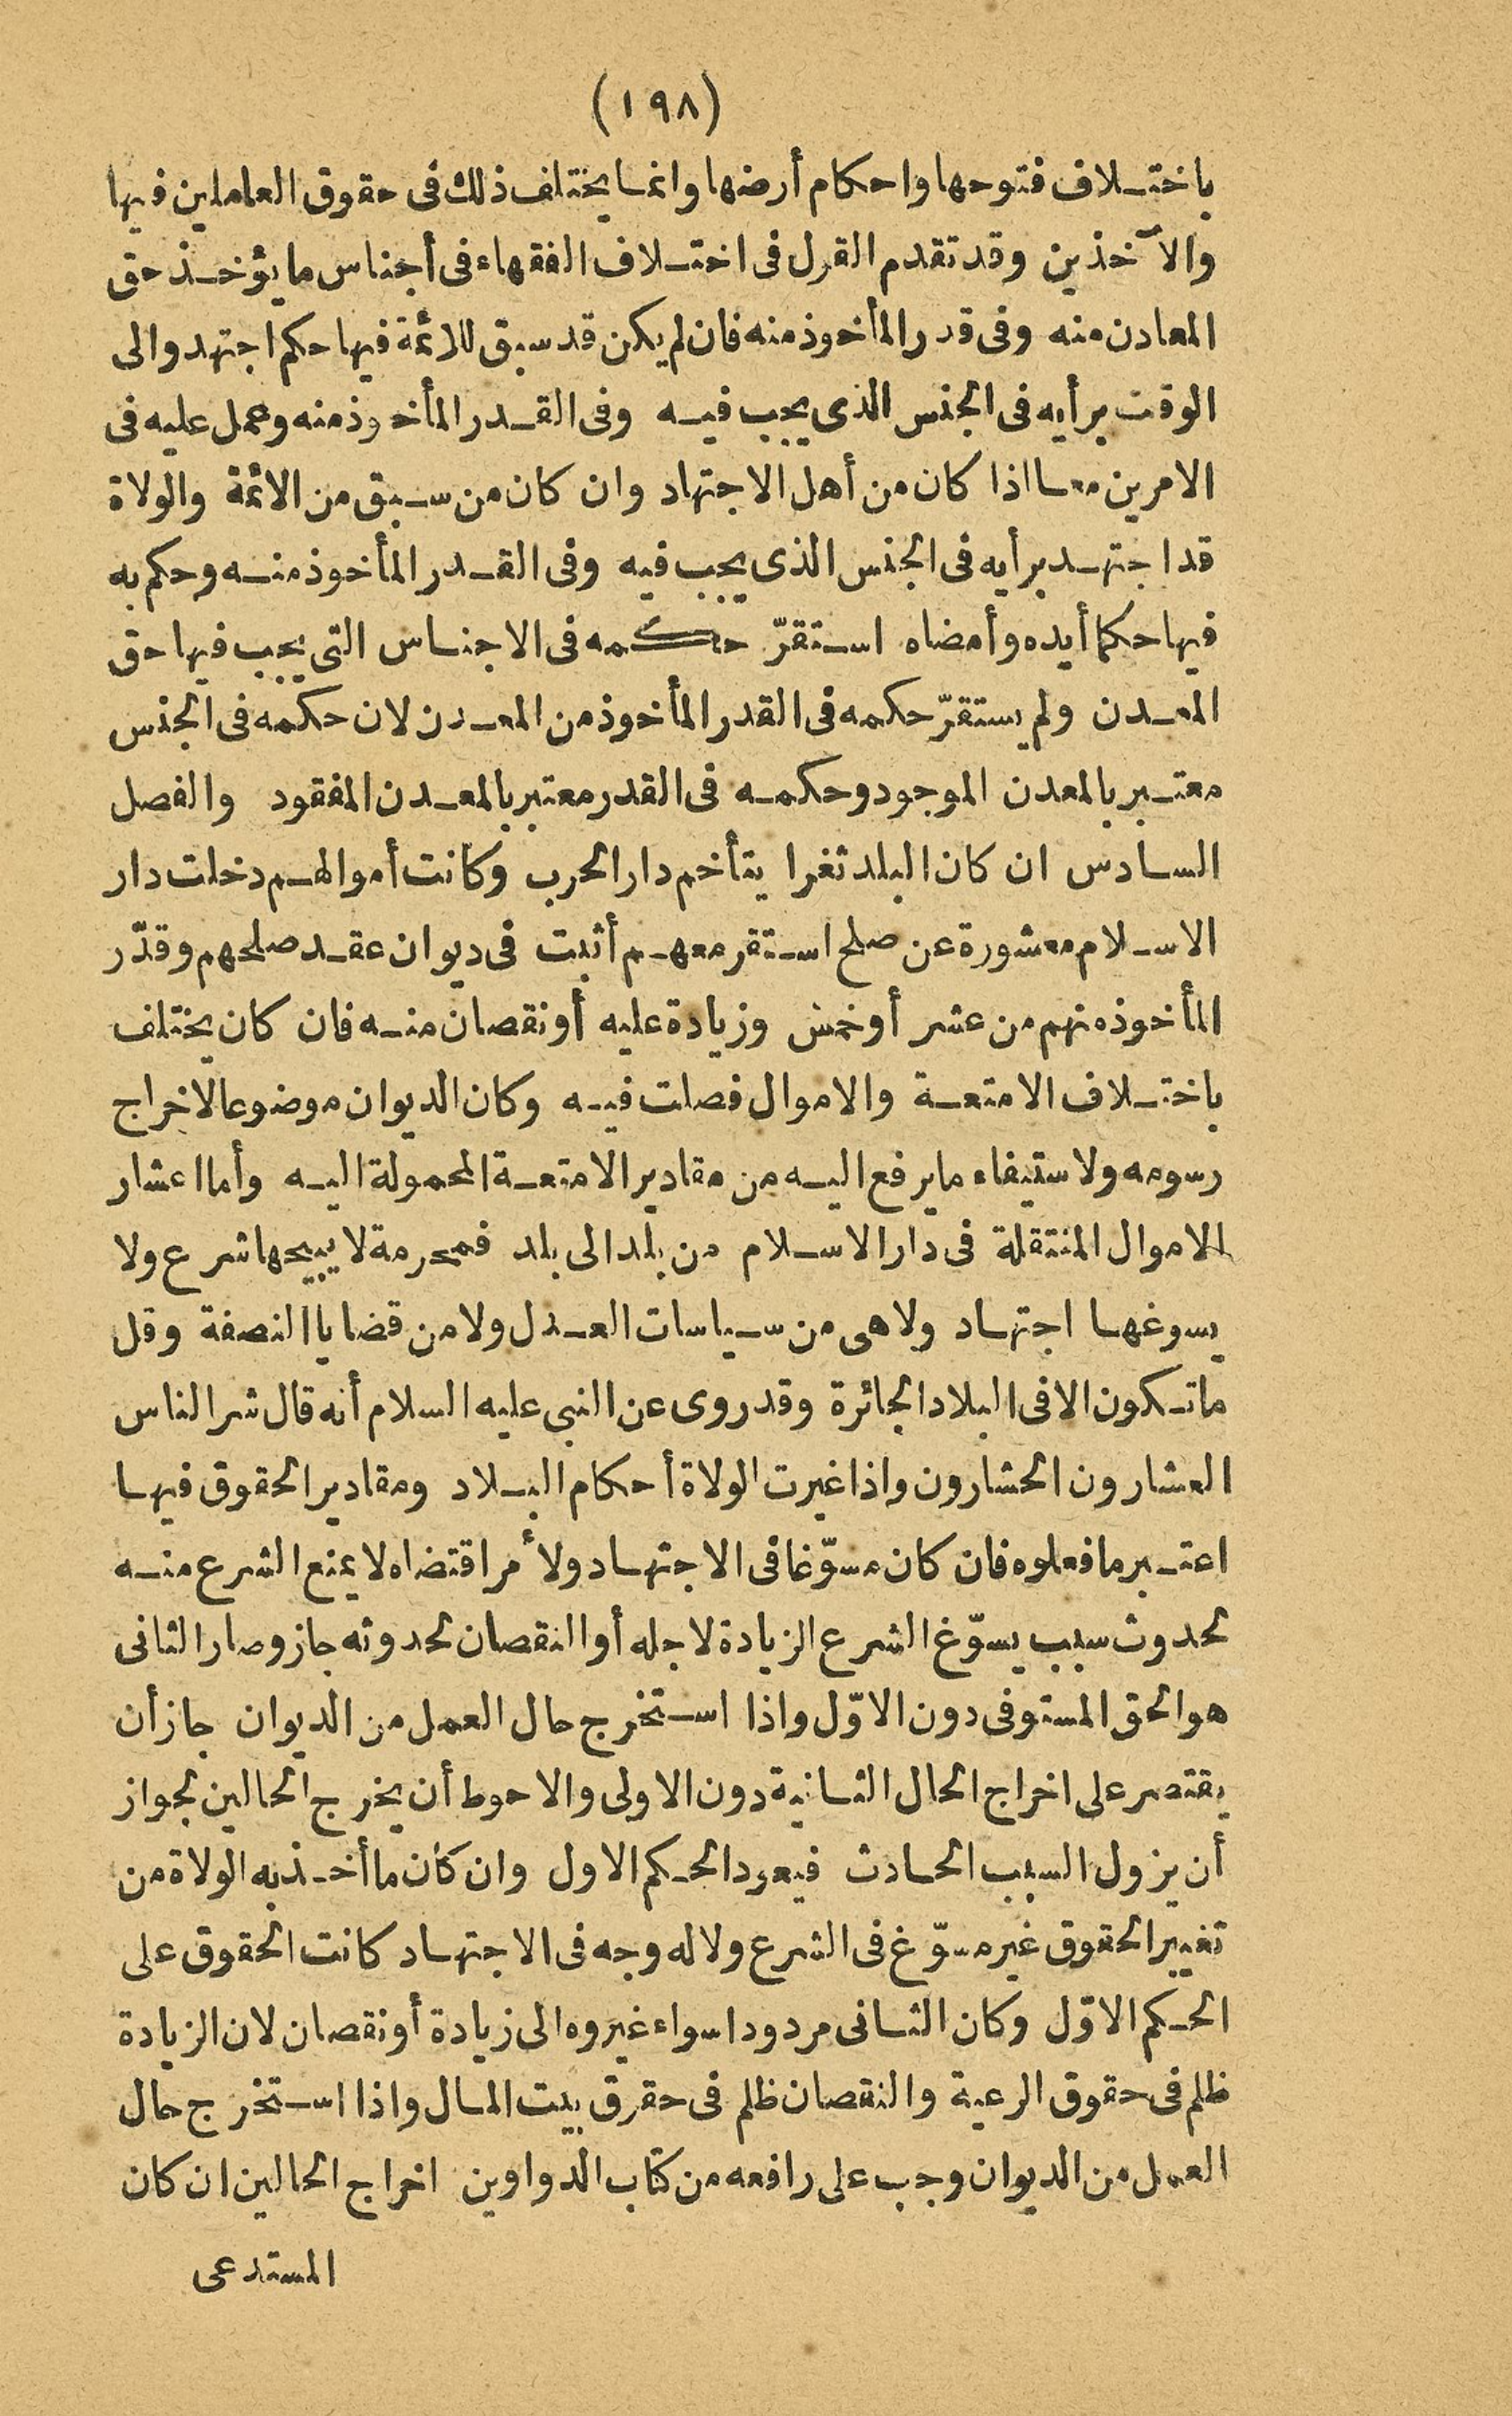 (١٩٨)
باختلاف فتوحها واحكام أرضها وانما يختلف ذلك فى حقوق العاملين فيها
والآخذين وقد تقدم القول فى اختلاف الفقهاء فى أجناس ما يؤخذ حق
المعادن منه وفى قدر المأخوذ منه فان لم يكن قد سبق للائمة فيها حكم اجتهد والى
الوقت برأيه فى الجنس الذى يجب فيه وفى القدر المأخوذ منه وعمل عليه فى
الامرين معا اذا كان من أهل الاجتهاد وان كان من سبق من الائمة والولاة
قد اجتهد برأيه فى الجنس الذى يجب فيه وفى القدر المأخوذ منه وحكم به
فيها حكما أيده وأمضاه استقرّ حكمه فى الاجناس التى يجب فيها حق
المعدن ولم يستقرّ حكمه فى القدر المأخوذ من المعدن لان حكمه فى الجنس
معتبر بالمعدن الموجود وحكمه فى القدر معتبر بالمعدن المفقود والفصل
السادس ان كان البلد ثغرا يتأخم دار الحرب وكانت أموالهم دخلت دار
الاسلام معشورة عن صلح استقر معهم أثبت فى ديوان عقد صلحهم وقدّر
المأخوذ منهم من عشر أو خمس وزيادة عليه أو نقصان منه فان كان يختلف
باختلاف الامتعة والاموال فصلت فيه وكان الديوان موضوعا لاخراج
رسومه ولاستيفاء ما يرفع اليه من مقادير الامتعة المحمولة اليه وأما اعشار
الاموال المنتقلة فى دار الاسلام من بلد الى بلد فمحرمة لا يبيحها شرع ولا
يسوغها اجتهاد ولا هى من سياسات العدل ولا من قضايا النصفة وقل
ما تكون الا فى البلاد الجائرة وقد روى عن النبى عليه السلام أنه قال شر الناس
العشارون الحشارون واذا غيرت الولاة أحكام البلاد ومقادير الحقوق فيها
اعتبر ما فعلوه فان كان مسوّغا فى الاجتهاد ولأ مر اقتضاه لا يمنع الشرع منه
لحدوث سبب يسوّغ الشرع الزيادة لاجله أو النقصان لحدوثه جاز وصار الثانى
هو الحق المستوفى دون الاوّل واذا استخرج حال العمل من الديوان جاز أن
يقتصر على اخراج الحال الثانية دون الاولى والاحوط أن يخرج الحالين لجواز
أن يزول السبب الحادث فيعود الحكم الاول وان كان ما أخذ به الولاة من
تغيير الحقوق غير مسوّغ فى الشرع ولا له وجه فى الاجتهاد كانت الحقوق على
الحكم الاوّل وكان الثانى مردودا سواء غيروه الى زيادة أو نقصان لان الزيادة
ظلم فى حقوق الرعية والنقصان ظلم فى حقوق بيت المال واذا استخرج حال
العمل من الديوان وجب على رافعه من كتاب الدواوين اخراج الحالين ان كان
المستدعى